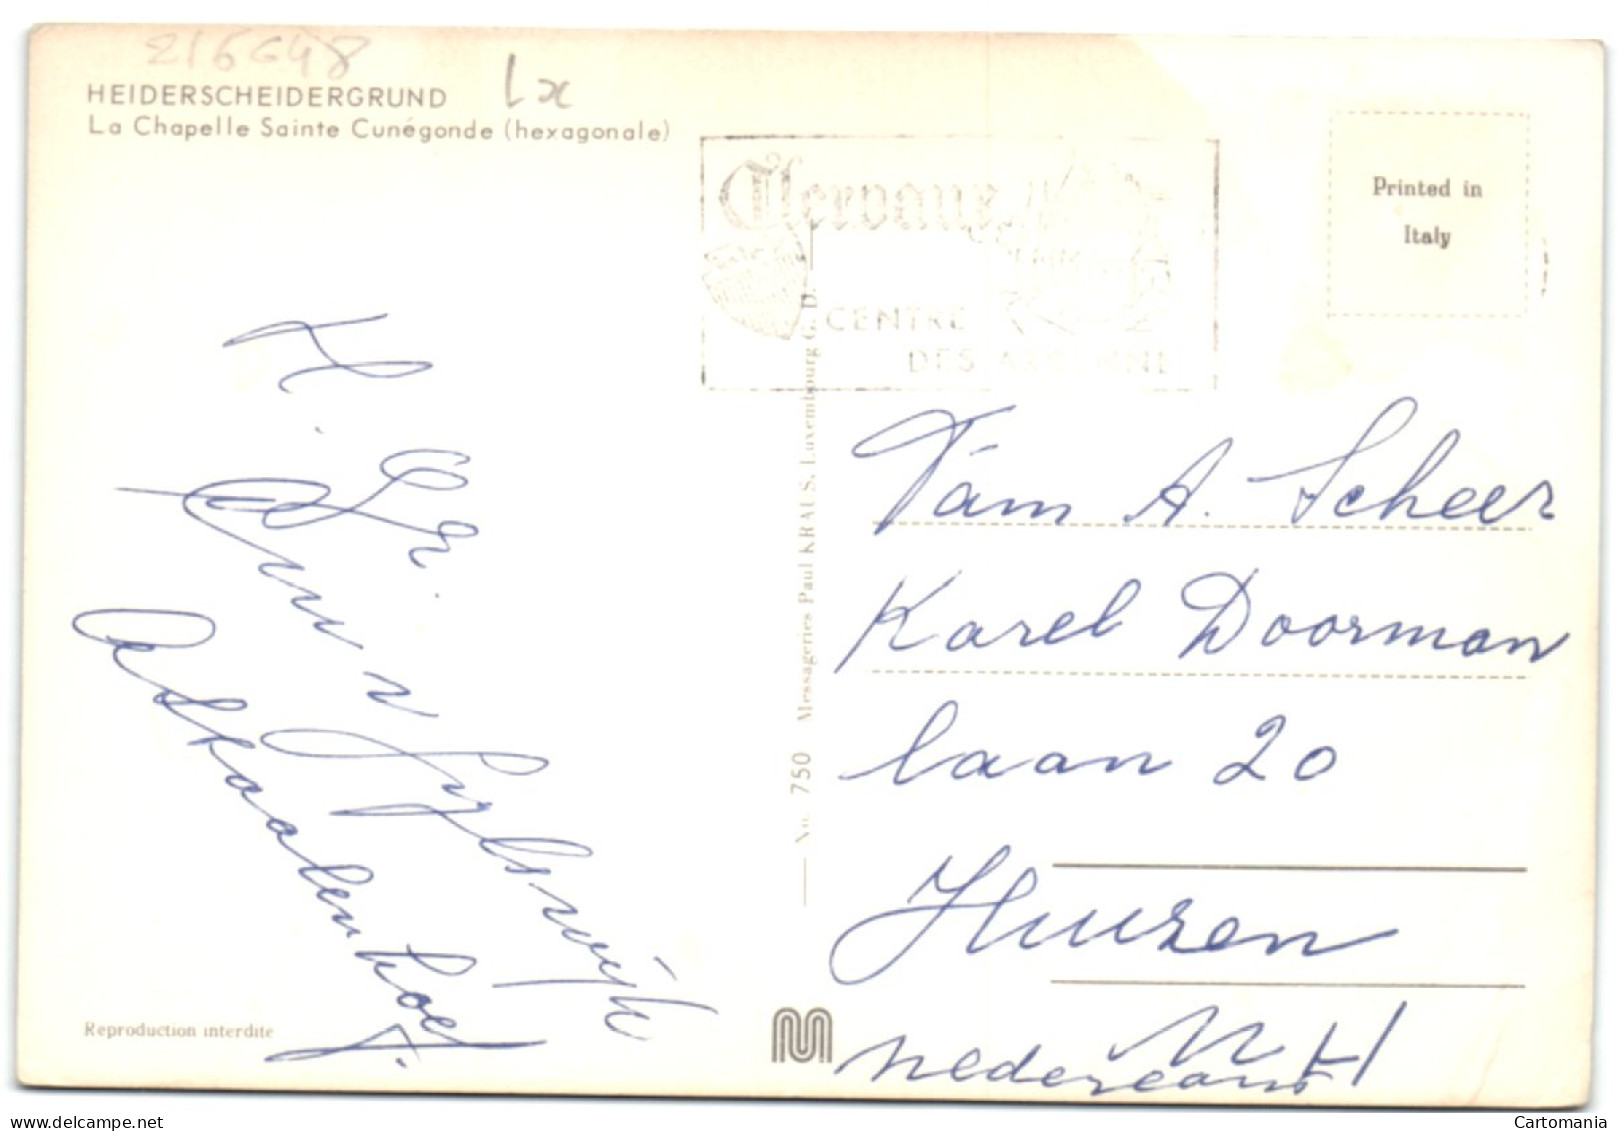 216648
Lx
HEIDERSCHEIDERGRUND
La Chapelle Sainte Cunégonde (hexagonale)
Clervaux
CENTRE
DES ARDENNE
Printed in
Italy
H. Gr.
Fam A. Scheer
Karel Doorman
laan 20
Huizen
N H
nederland
No. 750 Messageries Paul KRAUS, Luxembourg G. D.
Reproduction interdite
Cartomania